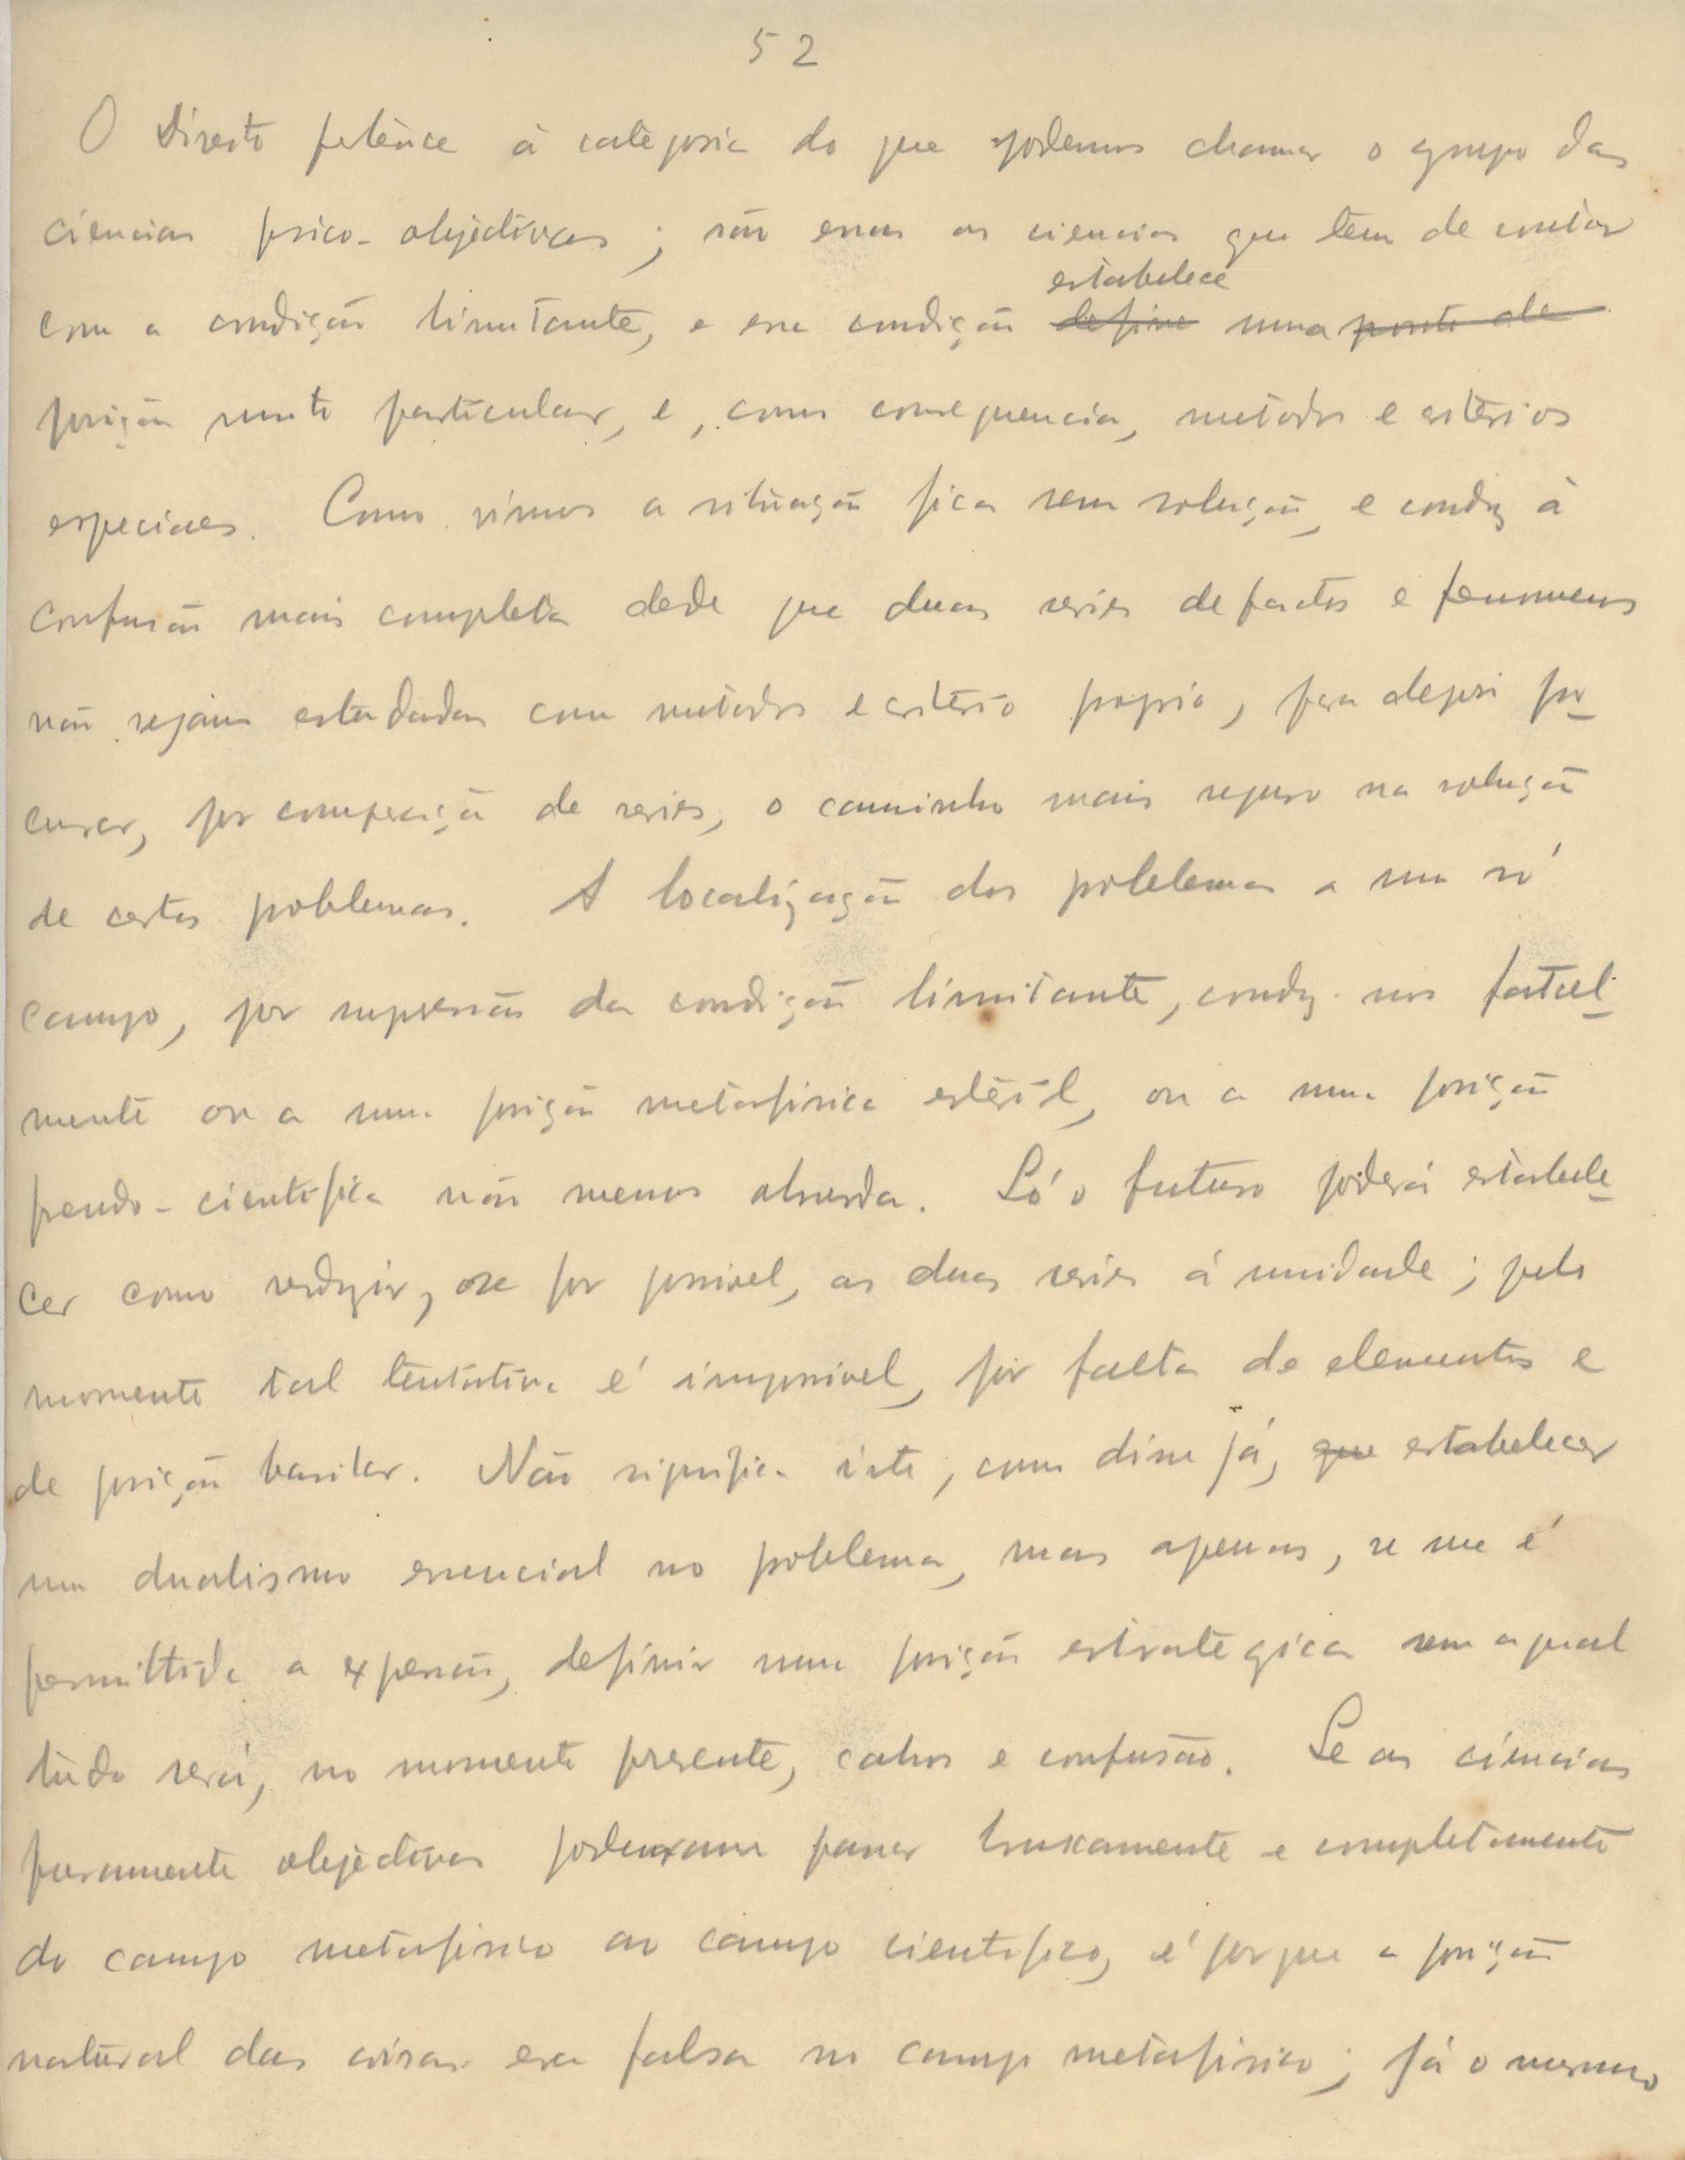 52
O Direito petence à categoria do que podemos chamar o grupo das
ciencias psico-objectivas; são essas as ciencias que tem de contar
estabelece
com a condição limitante, e essa condição define uma ponto de
posição muito particular, e, como consequencia, metodos e criterios
especiaes. Como vimos a situação fica sem solução, e conduz à
confusão mais completa desde que duas series de factos e fenomenos
não sejam estudadas com metodos e criterio proprio, para depois pro
curar, por comparação de series, o caminho mais seguro na solução
de certos problemas. A localização dos problemas a um só
campo, por supressão da condição limitante, conduz-nos fatal
mente ou a uma posição metafisica esteril, ou a uma posição
pseudo-cientifica não menos absurda. Só o futuro poderá estabele
cer como reduzir, se for possivel, as duas series á unidade; pelo
momento tal tentativa é impossivel, por falta de elementos e
de posição basilar. Não significa isto, como disse já, que estabelecer
um dualismo essencial no problema, mas apenas, se me é
permittida a expressão, definir uma posição estrategica sem a qual
tudo será, no momento presente, cahos e confusão. Se as ciencias
puramente objectivas poderam passar bruscamente e completamente
do campo metafisico ao campo cientifico, é porque a posição
natural das coisas era falsa no campo metafisico; já o mesmo